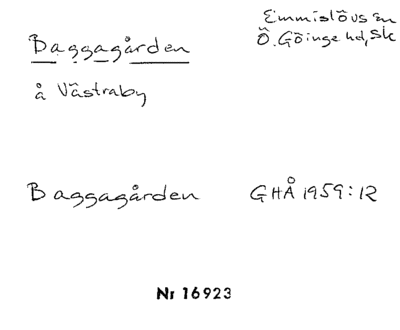 Baggagården
å Västraby
Emmislövs sn
Ö. Göinge hd, Sk
Baggagården GHÅ 1959:12
Nr 16923